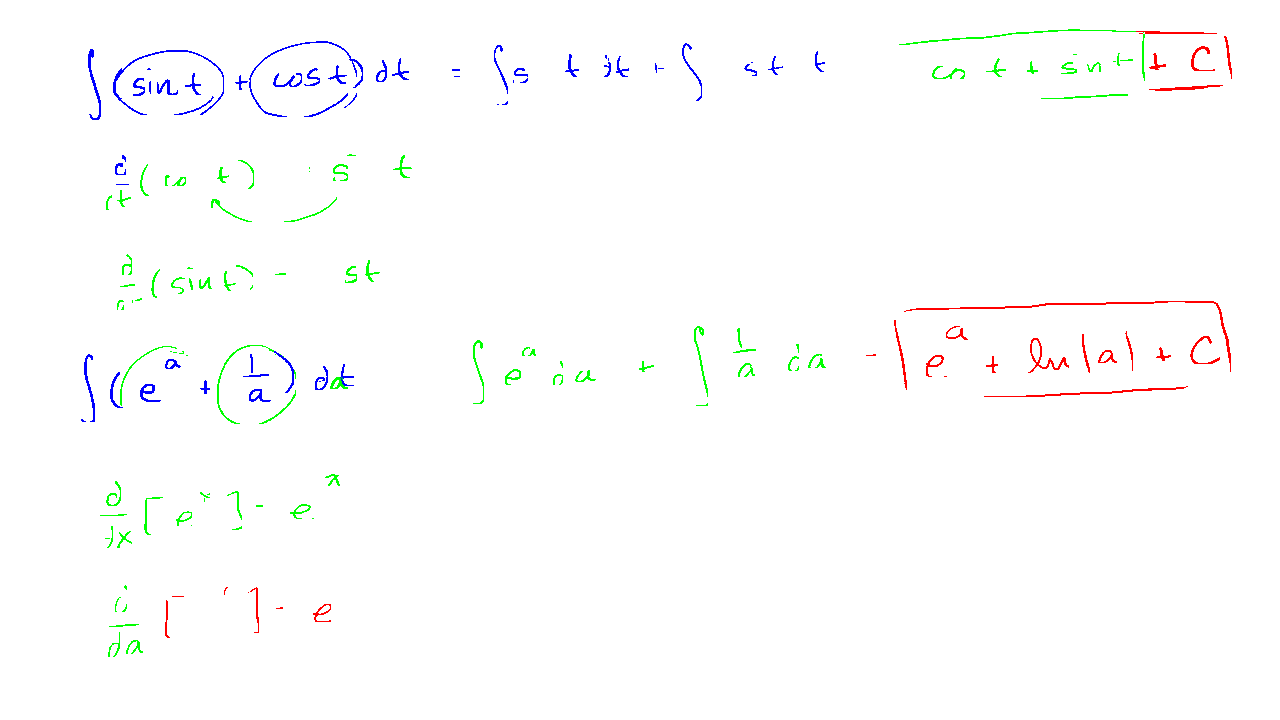 ∫(sin t + cos t) dt = ∫ s t dt + ∫ st t cos t + sin t + C
d/dt (co t) s t
d/dt (sin t) - st
∫(e^a + 1/a) da ∫ e^a da + ∫ 1/a da - e^a + ln|a| + C
d/dx [e^x] - e^x
d/da [ ] - e